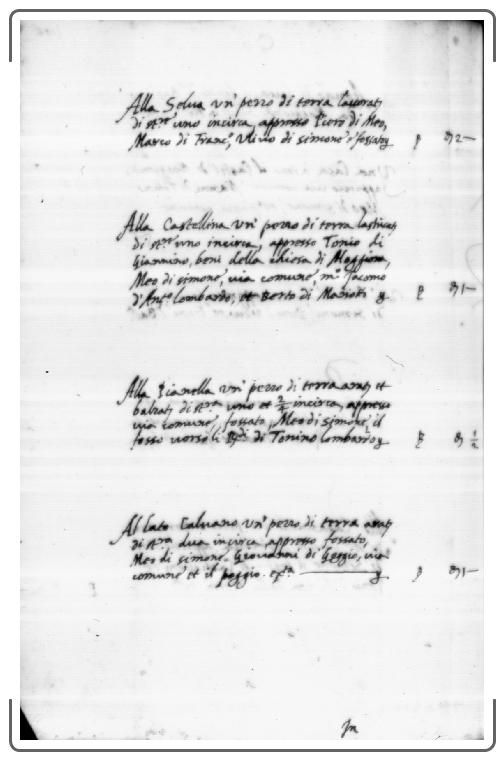 Alla Selva un' pezzo di terra lavorat
di st.re uno incirca, appresso Piero di Meo,
Marco di Franc.o, Ulivo di simone e fossato
Alla Castellina un' pezzo di terra
di st.re uno incirca, appresso Tonio di
Giannino, beni della chiesa di
Meo di simone, via comune, m.o Jacomo
d'Ant.o lombardo, et Berto di Mariotto
Alla Pianella un' pezzo di terra arat et
balzat di st.ra uno et incirca, appresso
via comune, fossato, Meo di simone, il
fosso verso li di Tonino lombardo
Al lato Calvano un' pezzo di terra arat
di st.ra dua incirca appresso fossato,
Meo di simone, Giovanni di Goggio, via
comune et il poggio